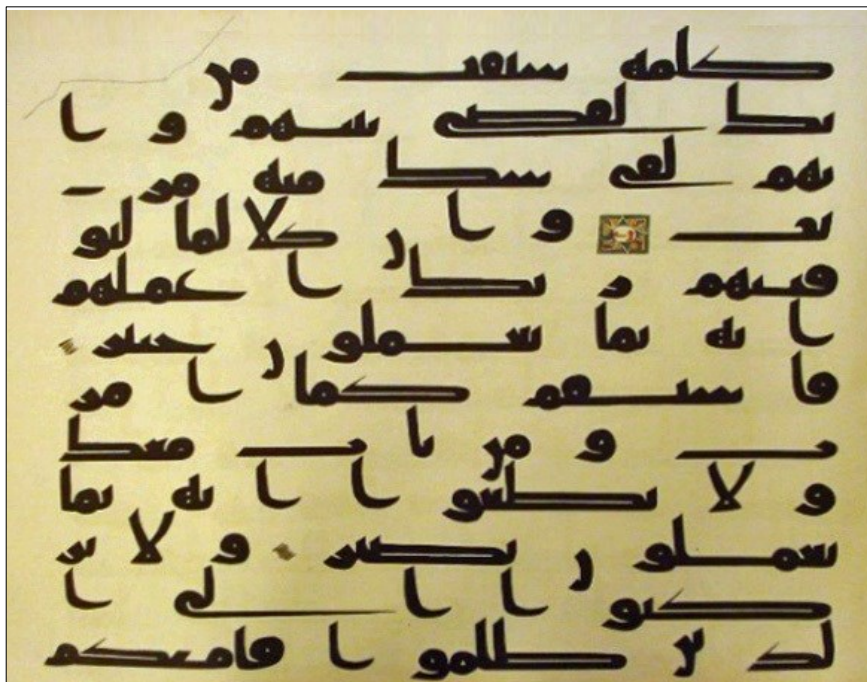 كلمه سبقت من ر
بك لقضى بينهم و ا
نهم لفى شك منه مر
يب و ا ن كلا لما ليو
فينهم ر بك ا عملهم
ا نه بما يعملو ن خبير
فا ستقم كما ا مر
ت و من تا ب معك
و لا تطغو ا ا نه بما
تعملو ن بصير و لا تر
كنو ا ا لى ا
لذ ين ظلمو ا فتمسكم